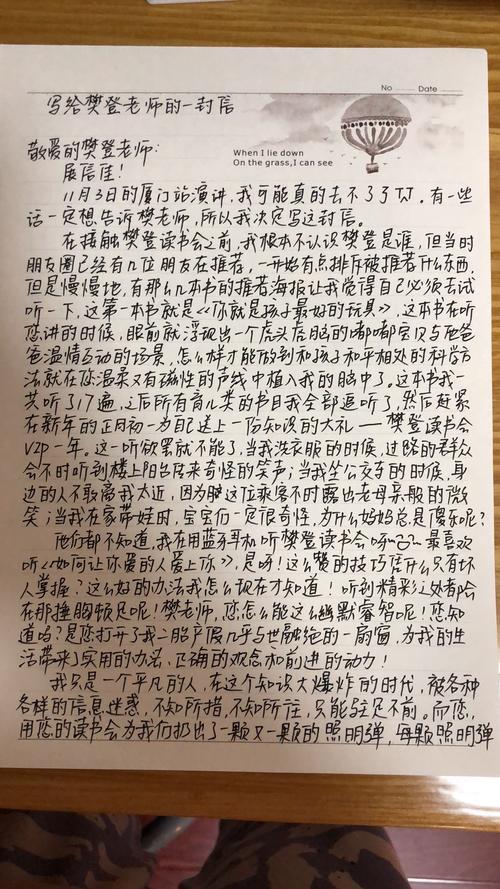 No Date
写给樊登老师的一封信
When I lie down
On the grass,I can see
敬爱的樊登老师:
展信佳!
11月3日的厦门站演讲,我可能真的去不了了TJ。有一些
话一定想告诉樊老师,所以我决定写这封信。
在接触樊登读书会之前,我根本不认识樊登是谁,但当时
朋友圈已经有几位朋友在推荐,一开始有点排斥被推荐什么东西,
但是慢慢地,有那么几本书的推荐海报让我觉得自己必须去试
听一下,这第一本书就是《你就是孩子最好的玩具》,这本书在听
您讲的时候,眼前就浮现出一个虎头虎脑的嘟嘟宝贝与他爸
爸温情互动的场景,怎么样才能做到和孩子和平相处的科学方
法就在您温柔又有磁性的声线中植入我的脑中了。这本书我一
共听了17遍,之后所有育儿类的书目我全部追听了,然后赶紧
在新年的正月初一为自己送上一份知识的大礼——樊登读书会
VIP一年。这一听欲罢就不能了,当我洗衣服的时候,过路的群众
会不时听到楼上阳台传来奇怪的笑声;当我坐公交车的时候,身
边的人不敢离我太近,因为这位乘客不时露出老母亲般的微
笑;当我在家带娃时,宝宝们一定很奇怪,为什么妈妈总是傻乐呢?
他们都不知道,我在用蓝牙耳机听樊登读书会呀~最喜欢
听《如何让你爱的人爱上你》,是呀!这么赞的技巧凭什么只有坏
人掌握?这么好的办法我怎么现在才知道!听到精彩之处都会
在那捶胸顿足呢!樊老师,您怎么能这么幽默睿智呢!您知
道吗?是您打开了我二胎产假几乎与世隔绝的一扇窗,为我的生
活带来了实用的办法、正确的观念和前进的动力!
我只是一个平凡的人,在这个知识大爆炸的时代,被各种
各样的信息迷惑,不知所措,不知所往,只能驻足不前。而您,
用您的读书会为我们扔出了一颗又一颗的照明弹,每颗照明弹